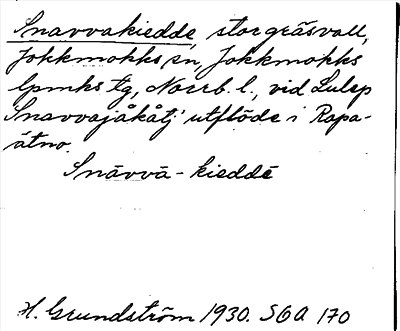 Snavvakiedde, stor gräsvall,
Jokkmokks sn, Jokkmokks
lpmks tg, Norrb. l., vid Lulep
Snavvajåkåtj' utflöde i Rapa-
ätno.
Snāvvā-kieddē
H. Grundström 1930. SOA 170